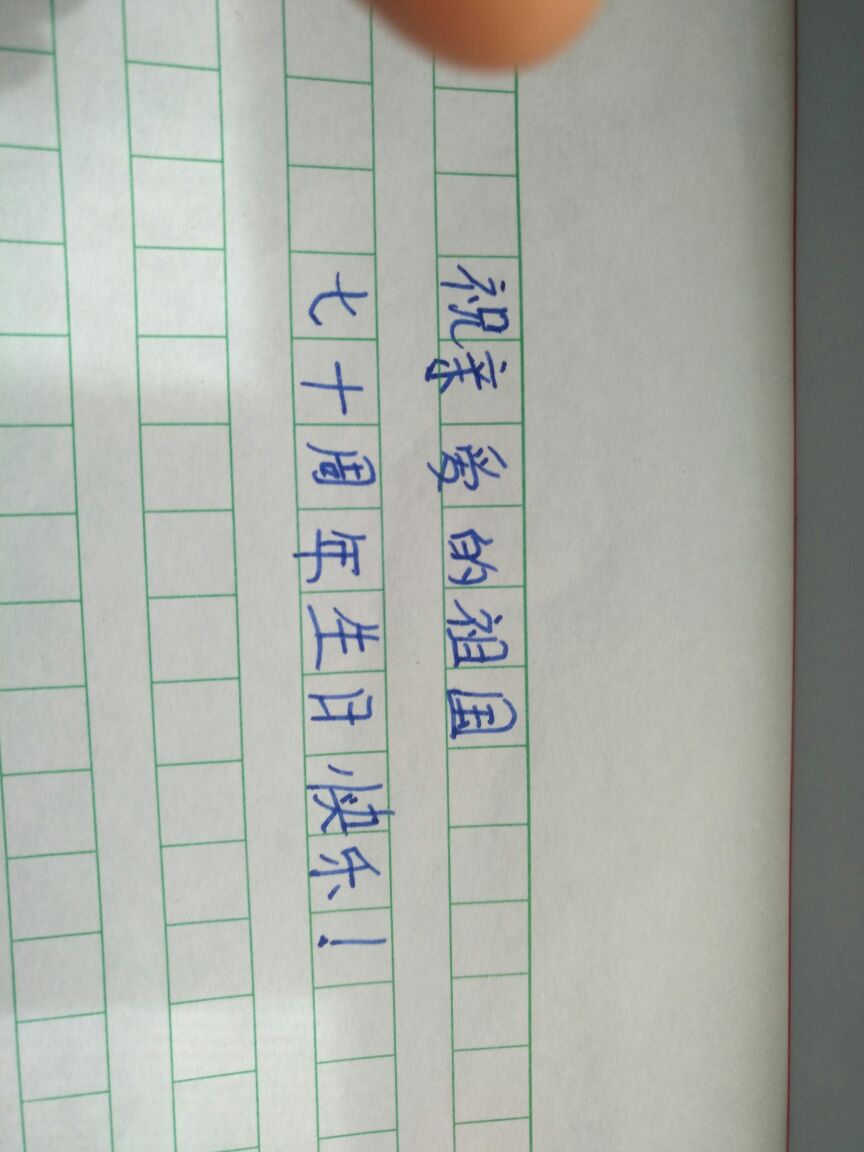 祝亲爱的祖国
七十周年生日快乐！